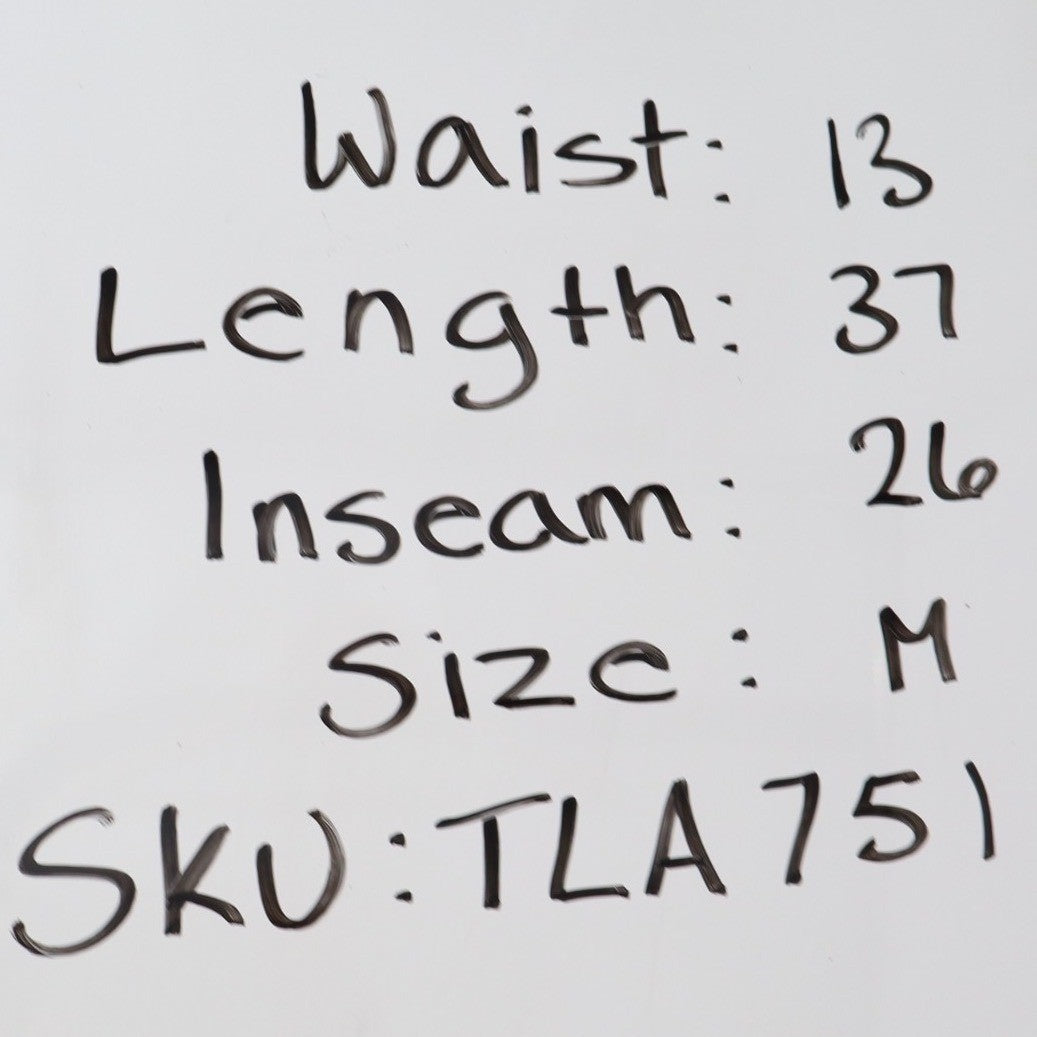 Waist: 13
Length: 37
Inseam: 26
Size: M
SKU: TLA751